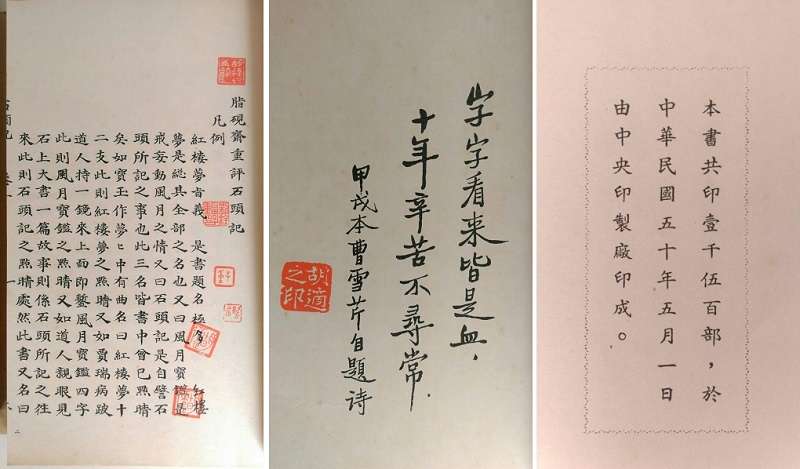 脂硯齋重評石頭記
凡例
紅樓夢旨義 是書題名極多 紅樓
夢是總其全部之名也又曰風月寶鑑是
戒妄動風月之情又曰石頭記是自譬石
頭所記之事也此三名皆書中曾已㸃睛
矣如寶玉作夢ヒ中有曲名曰紅樓夢十
二支此則紅樓夢之㸃睛又如賈瑞病跛
道人持一鏡來上面即鏨風月寶鑑四字
此則風月寶鑑之㸃睛又如道人親眼見
石上大書一篇故事則係石頭所記之徃
來此則石頭記之㸃睛處然此書又名曰
字字看來皆是血，
十年辛苦不尋常．
甲戌本曹雪芹自題诗
胡適之印
本書共印壹千伍百部，於
中華民國五十年五月一日
由中央印製廠印成。